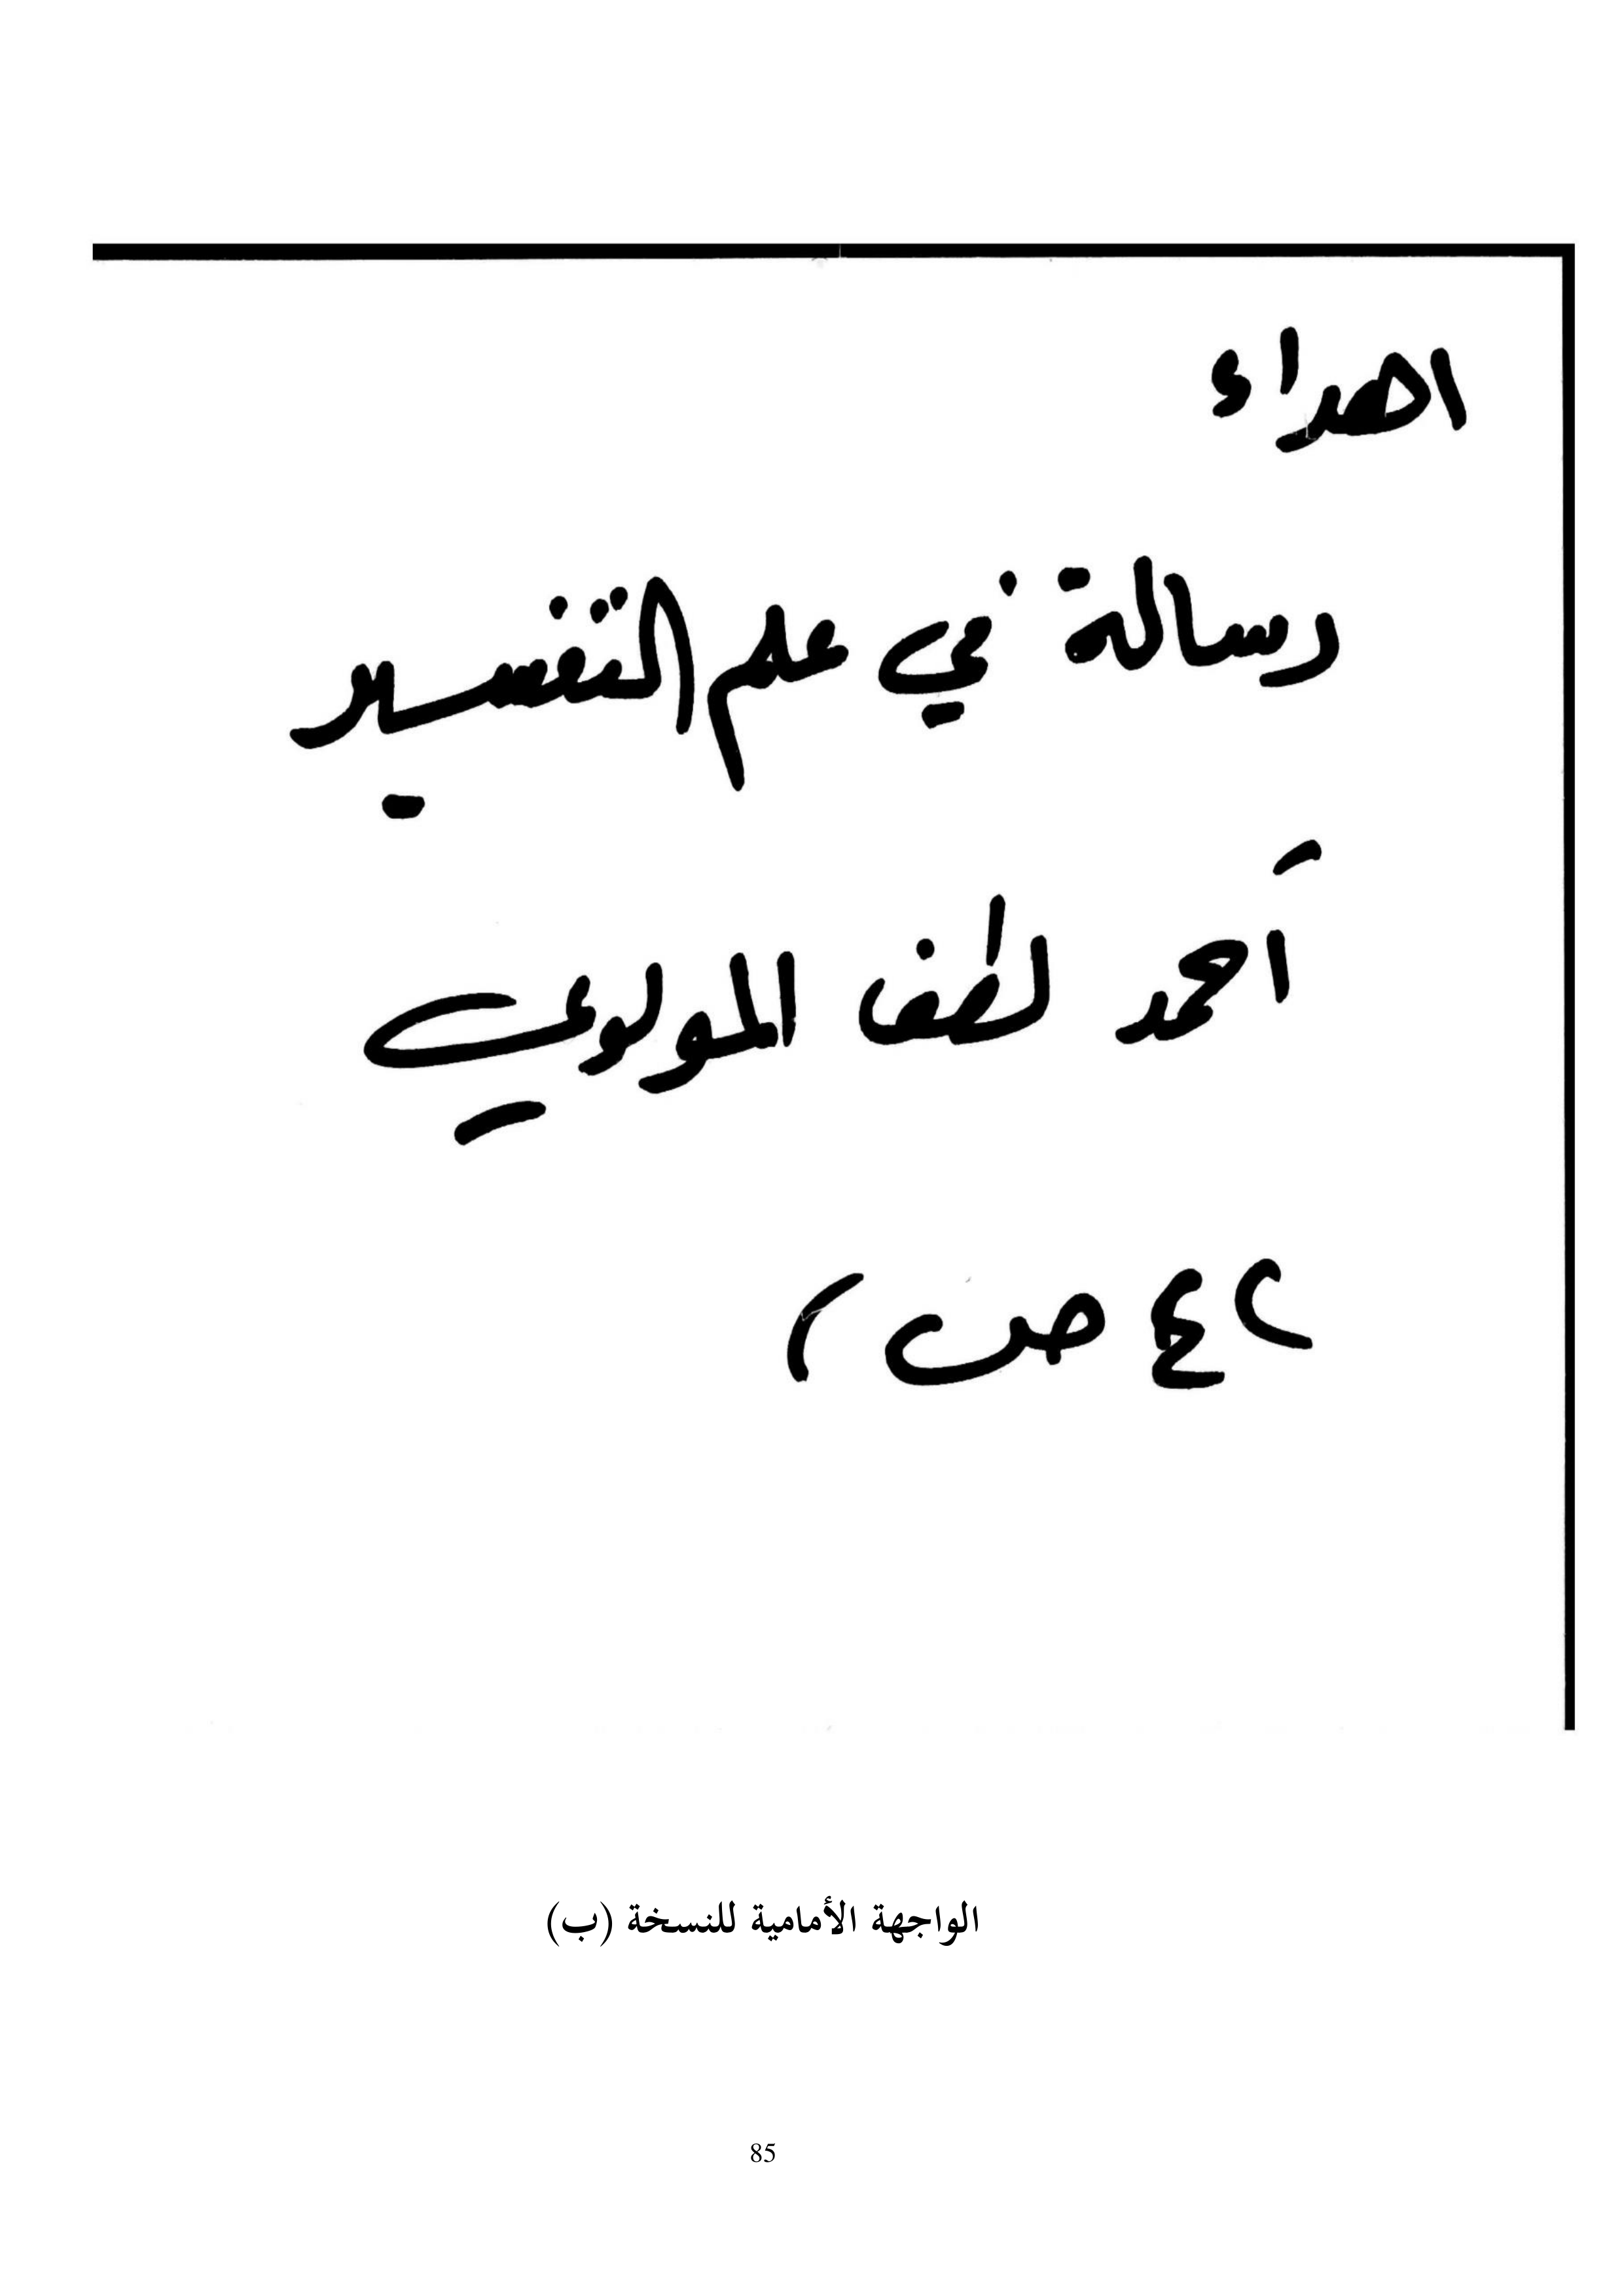 اهداء
رسالة في علم التفسير
أحمد لطف المولوي
٢٤ ص )
الواجهة الأمامية للنسخة (ب)
85